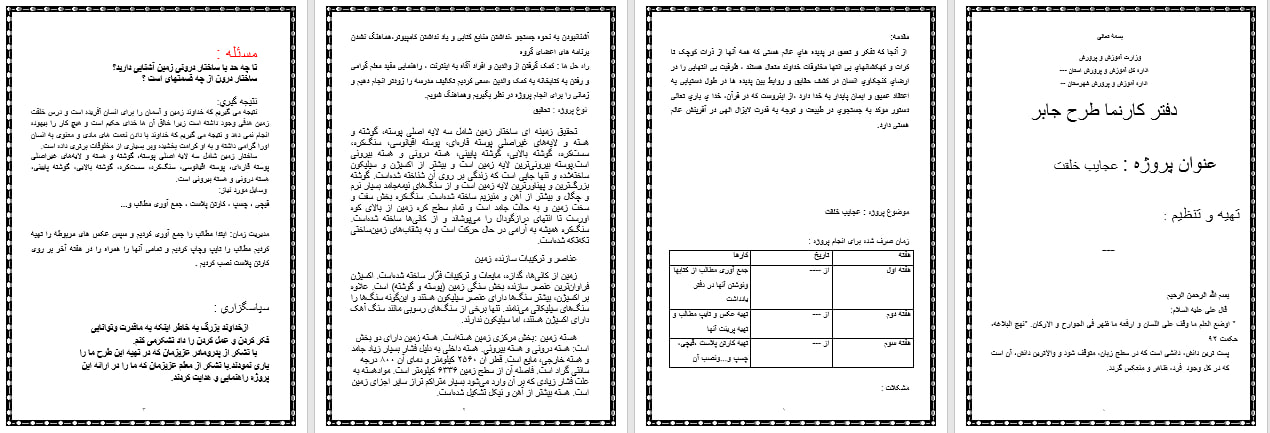 بسمه تعالی
وزارت آموزش و پرورش
اداره کل آموزش و پرورش استان ---
اداره آموزش و پرورش شهرستان ---
دفتر کارنما طرح جابر
عنوان پروژه : عجایب خلقت
تهیه و تنظیم :
---
بسم الله الرحمن الرحیم
قال علی علیه السلام:
" اوضع العلم ما وقف علی اللسان و ارفعه ما ظهر فی الجوارح و الارکان. "نهج البلاغه،
حکمت ۹۲
پست ترین دانش، دانشی است که در سطح زبان، متوقف شود و والاترین دانش، آن است
که در کل وجود فرد، ظاهر و منعکس گردد.
مقدمه:
از آنجا که تفکر و تعمق در پدیده های عالم هستی که همه آنها از ذرات کوچک تا
کرات و کهکشانهای بی انتها مخلوقات خداوند متعال هستند ، ظرفیت بی انتهایی را در
ارضای کنجکاوی انسان در کشف حقایق و روابط بین پدیده ها در طول دستیابی به
اعتقاد عمیق و ایمان پایدار به خدا دارد .از اینروست که در قرآن، خدا ی باری تعالی
دستور موکد به جستجوی در طبیعت و توجه به قدرت لایزال الهی در آفرینش عالم
هستی دارد.
موضوع پروژه : عجایب خلقت
زمان صرف شده برای انجام پروژه :
هفته تاریخ کارها
هفته اول از ---- جمع آوری مطالب از کتابها
ونوشتن آنها در دفتر
یادداشت
هفته دوم از --- تهیه عکس و تایپ مطالب و
تهیه پرینت آنها
هفته سوم از --- تهیه کارتن پلاست ،قیچی،
چسب و...ونصب آن
مشکلات :
۱
آشنانبودن به نحوه جستجو ،نداشتن منابع کتابی و یاد نداشتن کامپیوتر،هماهنگ نشدن
برنامه های اعضای گروه
راه حل ها : کمک گرفتن از والدین و افراد آگاه به اینترنت ، راهنمایی مفید معلم گرامی
و رفتن به کتابخانه به کمک والدین ،سعی کردیم تکالیف مدرسه را زودتر انجام دهیم و
زمانی را برای انجام پروژه در نظر بگیریم وهماهنگ شویم.
نوع پروژه : تحقیق
تحقیق زمینه ای ساختار زمین شامل سه لایه اصلی پوسته، گوشته و
هسته و لایه‌های غیراصلی پوسته قاره‌ای، پوسته اقیانوسی، سنگ‌کره،
سست‌کره، گوشته بالایی، گوشته پایینی، هسته درونی و هسته بیرونی
است.پوسته بیرونی‌ترین لایه زمین است و بیشتر از اکسیژن و سیلیکون
ساخته‌شده و تنها جایی است که زندگی بر روی آن شناخته شده‌است. گوشته
بزرگ‌ترین و پهناورترین لایه زمین است و از سنگ‌های نیمه‌جامد بسیار نرم
و چگال و بیشتر از آهن و منیزیم ساخته شده‌است. سنگ‌کره بخش سفت و
سخت زمین و به حالت جامد است و تمام سطح کره زمین از بالای کوه
اورست تا انتهای درازگودال را می‌پوشاند و از کانی‌ها ساخته شده‌است.
سنگ‌کره همیشه به آرامی در حال حرکت است و به بشقاب‌های زمین‌ساختی
تکه‌تکه شده‌است.
عناصر و ترکیبات سازنده زمین
زمین از کانی‌ها، گدازه، مایعات و ترکیبات فرّار ساخته شده‌است. اکسیژن
فراوان‌ترین عنصر سازنده بخش سنگی زمین (پوسته و گوشته) است. علاوه
بر اکسیژن، بیشتر سنگ‌ها دارای عنصر سیلیکون هستند و این‌گونه سنگ‌ها را
سنگ‌های سیلیکاتی می‌نامند. تنها برخی از سنگ‌های رسوبی مانند سنگ آهک
دارای اکسیژن هستند، اما سیلیکون ندارند.
هسته زمین :بخش مرکزی زمین هسته‌است. هسته زمین دارای دو بخش
است: هسته درونی و هسته بیرونی. هسته داخلی به دلیل فشار بسیار زیاد جامد
و هسته خارجی، مایع است. قطر آن ۲۵۶۰ کیلومتر و دمای آن ۸۰۰۰ درجه
سانتی گراد است. فاصله آن از سطح زمین ۶۳۳۶ کیلومتر است. موادهسته به
علت فشار زیادی که بر آن وارد می‌شود بسیار متراکم تراز سایر اجزای زمین
است. هسته بیشتر از آهن و نیکل تشکیل شده‌است.
۲
مسئله :
تا چه حد با ساختار درونی زمین آشنایی دارید؟
ساختار درون از چه قسمتهای است ؟
نتیجه گیری:
نتیجه می گیریم که خداوند زمین و آسمان را برای انسان آفریده است و درس خلقت
زمین هدفی وجود داشته است زیرا خالق آن ها خدای حکیم است و هیچ کار را بیهوده
انجام نمی دهد و نتیجه می گیریم که خداوند با دادن نعمت های مادی و معنوی به انسان
اورا گرامی داشته و به او کرامت بخشیده وبر بسیاری از مخلوقات برتری داده است.
ساختار زمین شامل سه لایه اصلی پوسته، گوشته و هسته و لایه‌های غیراصلی
پوسته قاره‌ای، پوسته اقیانوسی، سنگ‌کره، سست‌کره، گوشته بالایی، گوشته پایینی،
هسته درونی و هسته بیرونی است.
وسایل مورد نیاز:
قیچی ، چسب ، کارتن پلاست ، جمع آوری مطالب و...
مدیریت زمان: ابتدا مطالب را جمع آوری کردیم و سپس عکس های مربوطه را تهیه
کردیم مطالب را تایپ وچاپ کردیم و تمامی آنها را همراه را در هفته آخر بر روی
کارتن پلاست نصب کردیم .
سپاسگزاری :
ازخداوند بزرگ به خاطر اینکه به ماقدرت وتوانایی
فکر کردن و عمل کردن را داد تشکرمی کنم.
با تشکر از پدرومادر عزیزمان که در تهیه این طرح ما را
یاری نمودند.با تشکر از معلم عزیزمان که ما را در ارائه این
پروژه راهنمایی و هدایت کردند.
۳